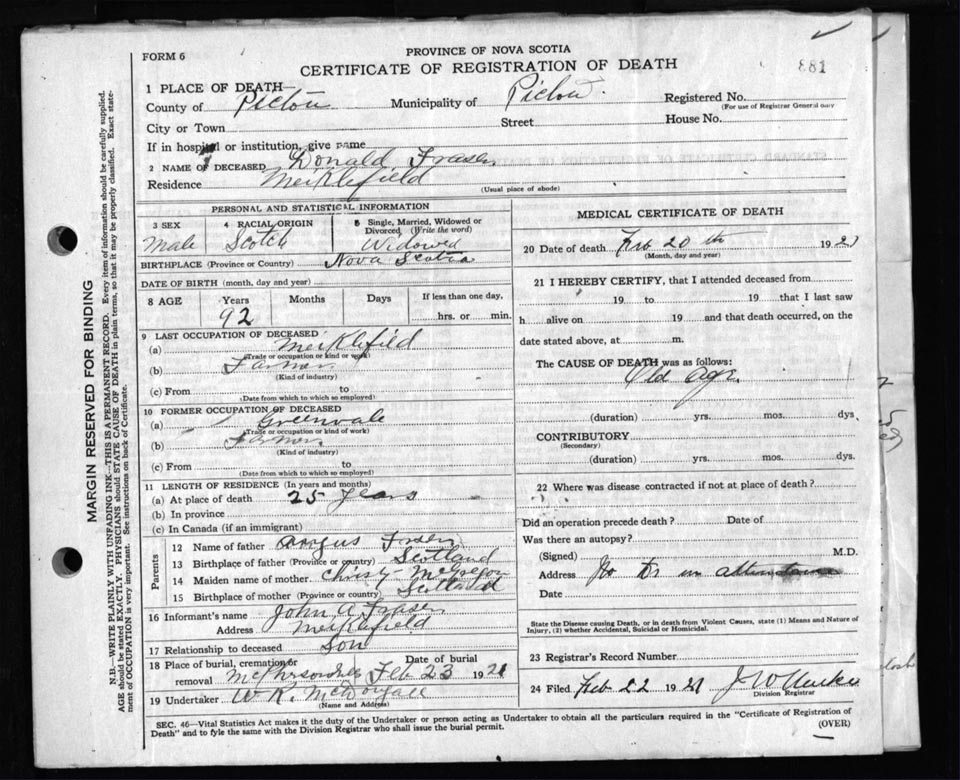 FORM 6
PROVINCE OF NOVA SCOTIA
CERTIFICATE OF REGISTRATION OF DEATH
881
1 PLACE OF DEATH—
County of Pictou Municipality of Pictou. Registered No.
(For use of Registrar General only
City or Town Street House No.
If in hospital or institution, give name
2 NAME OF DECEASED Donald Fraser
Residence Meiklefield
(Usual place of abode)
PERSONAL AND STATISTICAL INFORMATION
3 SEX 4 RACIAL ORIGIN 5 Single, Married, Widowed or Divorced (Write the word)
Male Scotch Widowed
BIRTHPLACE (Province or Country) Nova Scotia
DATE OF BIRTH (month, day and year)
8 AGE Years Months Days If less than one day,
92 hrs. or min.
9 LAST OCCUPATION OF DECEASED
(a) Meiklefield
(Trade or occupation or kind of work)
(b) Farmer
(Kind of industry)
(c) From to
(Date from which to which so employed)
10 FORMER OCCUPATION OF DECEASED
(a) Greenvale
(Trade or occupation or kind of work)
(b) Farmer
(Kind of industry)
(c) From to
(Date from which to which so employed)
11 LENGTH OF RESIDENCE (In years and months)
(a) At place of death 25 years
(b) In province
(c) In Canada (if an immigrant)
Parents
12 Name of father Angus Fraser
13 Birthplace of father (Province or country) Scotland
14 Maiden name of mother Christy McGregor
15 Birthplace of mother (Province or country) Scotland
16 Informant's name John A Fraser
Address Meiklefield
17 Relationship to deceased Son
18 Place of burial, cremation or Date of burial
removal Feb 23 192
19 Undertaker W. K. McDougall
(Name and Address)
MEDICAL CERTIFICATE OF DEATH
20 Date of death Feb 20 th 192
(Month, day and year)
21 I HEREBY CERTIFY, that I attended deceased from
19 to 19 that I last saw
h alive on 19 and that death occurred, on the
date stated above, at m.
The CAUSE OF DEATH was as follows:
Old Age.
(duration) yrs. mos. dys.
CONTRIBUTORY
(Secondary)
(duration) yrs. mos. dys.
22 Where was disease contracted if not at place of death?
Did an operation precede death? Date of
Was there an autopsy?
(Signed) M.D.
Address No Dr in attendance
Date
State the Disease causing Death, or in death from Violent Causes, state (1) Means and Nature of Injury, (2) whether Accidental, Suicidal or Homicidal.
23 Registrar's Record Number
24 Filed Feb 22 192
Division Registrar
SEC. 46—Vital Statistics Act makes it the duty of the Undertaker or person acting as Undertaker to obtain all the particulars required in the "Certificate of Registration of
Death" and to fyle the same with the Division Registrar who shall issue the burial permit.
(OVER)
MARGIN RESERVED FOR BINDING
N.B.—WRITE PLAINLY WITH UNFADING INK—THIS IS A PERMANENT RECORD. Every item of information should be carefully supplied.
AGE should be stated EXACTLY. PHYSICIANS should STATE CAUSE OF DEATH in plain terms, so that it may be properly classified. Exact state-
ment of OCCUPATION is very important. See instructions on back of Certificate.